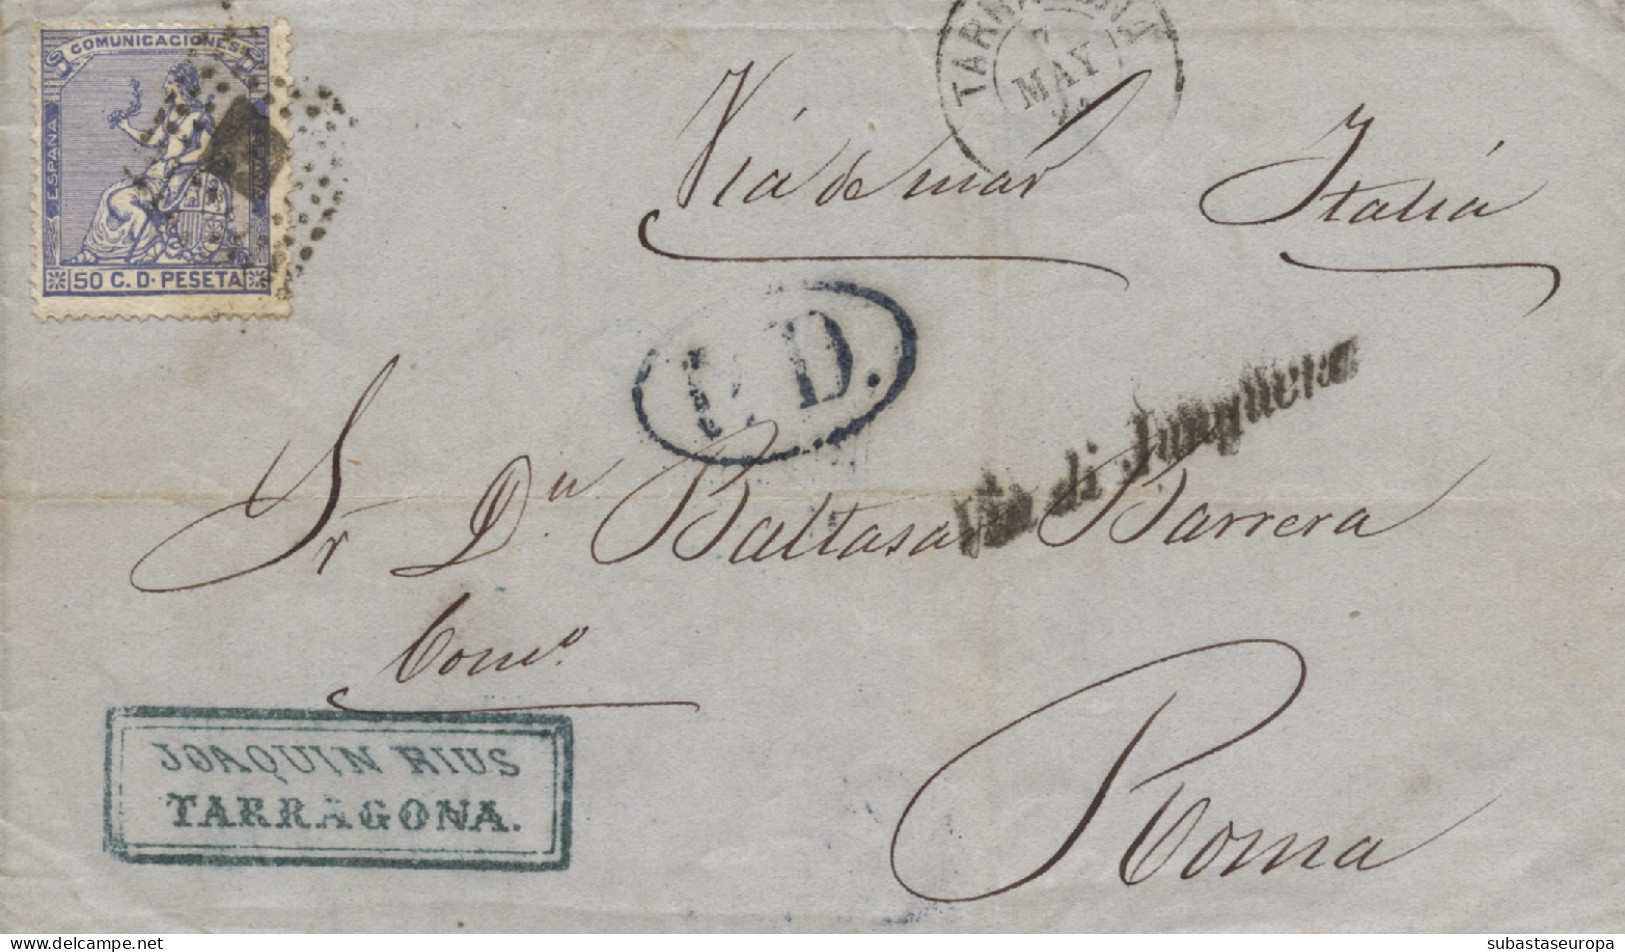 COMUNICACIONES
ESPAÑA
50 C. D. PESETA
TARRAGONA
7
MAY
Vía de mar Italiá
P. D.
Via di Junquera
Sr Dn Baltasar Barrera
Como
Roma
JOAQUIN RIUS
TARRAGONA.
delcampe.net
subastaseuropa